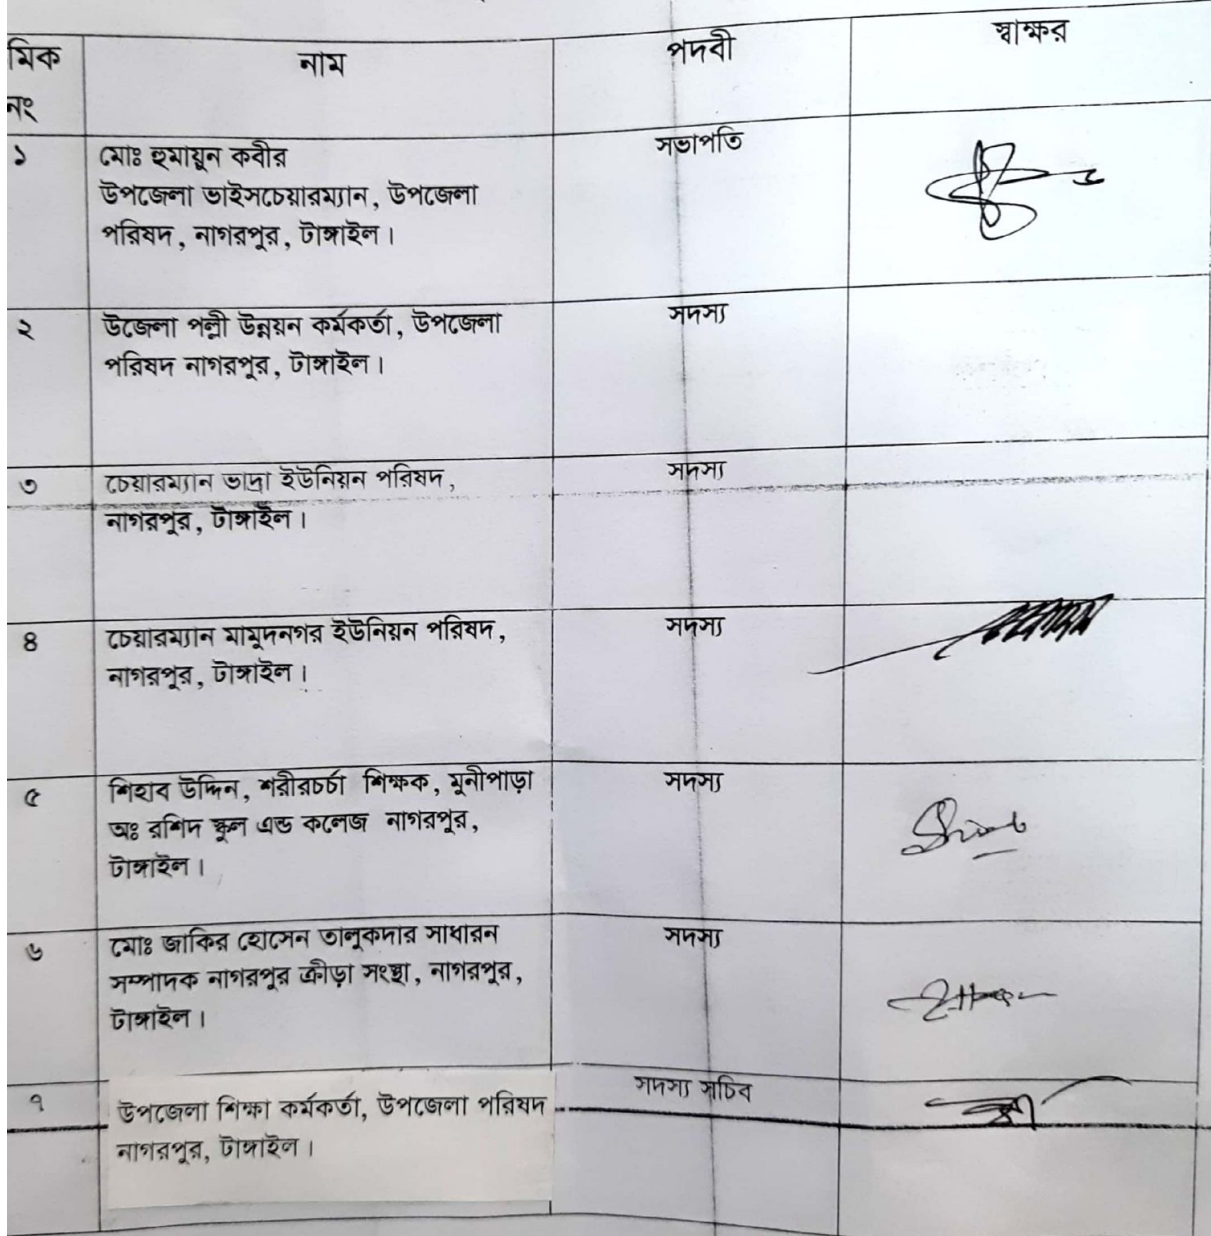 মিক
নং
নাম
পদবী
স্বাক্ষর
১
মোঃ হুমায়ুন কবীর
উপজেলা ভাইসচেয়ারম্যান, উপজেলা
পরিষদ, নাগরপুর, টাঙ্গাইল।
সভাপতি
২
উজেলা পল্লী উন্নয়ন কর্মকর্তা, উপজেলা
পরিষদ নাগরপুর, টাঙ্গাইল।
সদস্য
৩
চেয়ারম্যান ভাদ্রা ইউনিয়ন পরিষদ,
নাগরপুর, টাঙ্গাইল।
সদস্য
৪
চেয়ারম্যান মামুদনগর ইউনিয়ন পরিষদ,
নাগরপুর, টাঙ্গাইল।
সদস্য
৫
শিহাব উদ্দিন, শরীরচর্চা শিক্ষক, মুনীপাড়া
অঃ রশিদ স্কুল এন্ড কলেজ নাগরপুর,
টাঙ্গাইল।
সদস্য
৬
মোঃ জাকির হোসেন তালুকদার সাধারন
সম্পাদক নাগরপুর ক্রীড়া সংস্থা, নাগরপুর,
টাঙ্গাইল।
সদস্য
৭
উপজেলা শিক্ষা কর্মকর্তা, উপজেলা পরিষদ
নাগরপুর, টাঙ্গাইল।
সদস্য সচিব